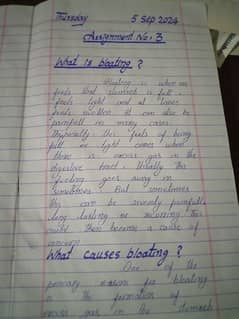 Thursday 5 Sep 2024
Assignment No: 3
What is bloating ?
Bloating is when one
feels that stomach is full
feels tight and at times
feels swollen. It can also be
painful in many cases.
Typically this feels of being
full or tight comes when
there is excess gas in the
digestive tract. Usually this
feeling goes away in
sometimes. But sometimes
this can be severly painfull
long lasting or recurring this
could then become a cause of
concern
What causes bloating ?
One of the
primary reasons for bloating
is the formation of
excess gas in the stomach